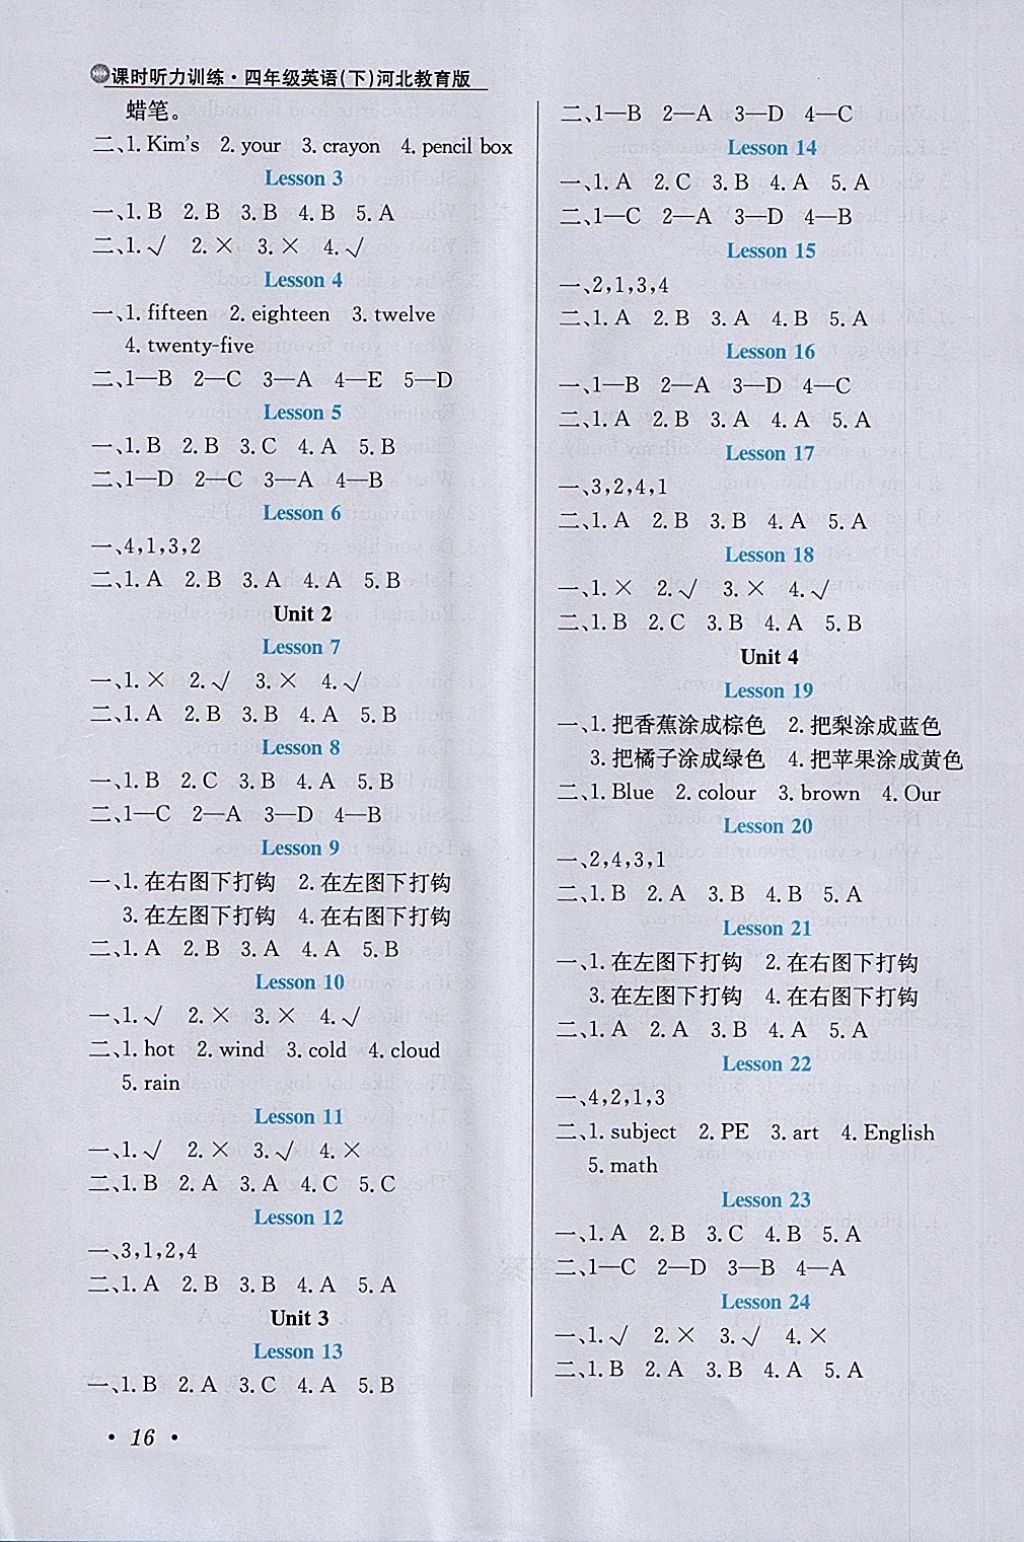 课时听力训练·四年级英语(下)河北教育版
蜡笔。
二、1. Kim's 2. your 3. crayon 4. pencil box
Lesson 3
一、1. B 2. B 3. B 4. B 5. A
二、1. √ 2. × 3. × 4. √
Lesson 4
一、1. fifteen 2. eighteen 3. twelve
4. twenty-five
二、1—B 2—C 3—A 4—E 5—D
Lesson 5
一、1. B 2. B 3. C 4. A 5. B
二、1—D 2—C 3—A 4—B
Lesson 6
一、4,1,3,2
二、1. A 2. B 3. A 4. A 5. B
Unit 2
Lesson 7
一、1. × 2. √ 3. × 4. √
二、1. A 2. B 3. B 4. A 5. B
Lesson 8
一、1. B 2. C 3. B 4. A 5. B
二、1—C 2—A 3—D 4—B
Lesson 9
一、1. 在右图下打钩 2. 在左图下打钩
3. 在左图下打钩 4. 在右图下打钩
二、1. A 2. B 3. A 4. A 5. B
Lesson 10
一、1. √ 2. × 3. × 4. √
二、1. hot 2. wind 3. cold 4. cloud
5. rain
Lesson 11
一、1. √ 2. × 3. √ 4. ×
二、1. B 2. A 3. A 4. C 5. C
Lesson 12
一、3,1,2,4
二、1. A 2. B 3. B 4. A 5. A
Unit 3
Lesson 13
一、1. B 2. A 3. C 4. A 5. B
· 16 ·
二、1—B 2—A 3—D 4—C
Lesson 14
一、1. A 2. C 3. B 4. A 5. A
二、1—C 2—A 3—D 4—B
Lesson 15
一、2,1,3,4
二、1. A 2. B 3. A 4. B 5. A
Lesson 16
一、1—B 2—A 3—D 4—C
二、1. A 2. B 3. A 4. A 5. A
Lesson 17
一、3,2,4,1
二、1. A 2. B 3. B 4. A 5. A
Lesson 18
一、1. × 2. √ 3. × 4. √
二、1. B 2. C 3. B 4. A 5. B
Unit 4
Lesson 19
一、1. 把香蕉涂成棕色 2. 把梨涂成蓝色
3. 把橘子涂成绿色 4. 把苹果涂成黄色
二、1. Blue 2. colour 3. brown 4. Our
Lesson 20
一、2,4,3,1
二、1. B 2. A 3. B 4. B 5. A
Lesson 21
一、1. 在左图下打钩 2. 在右图下打钩
3. 在左图下打钩 4. 在右图下打钩
二、1. A 2. A 3. B 4. A 5. A
Lesson 22
一、4,2,1,3
二、1. subject 2. PE 3. art 4. English
5. math
Lesson 23
一、1. A 2. B 3. C 4. B 5. A
二、1—C 2—D 3—B 4—A
Lesson 24
一、1. √ 2. × 3. √ 4. ×
二、1. B 2. A 3. B 4. A 5. A